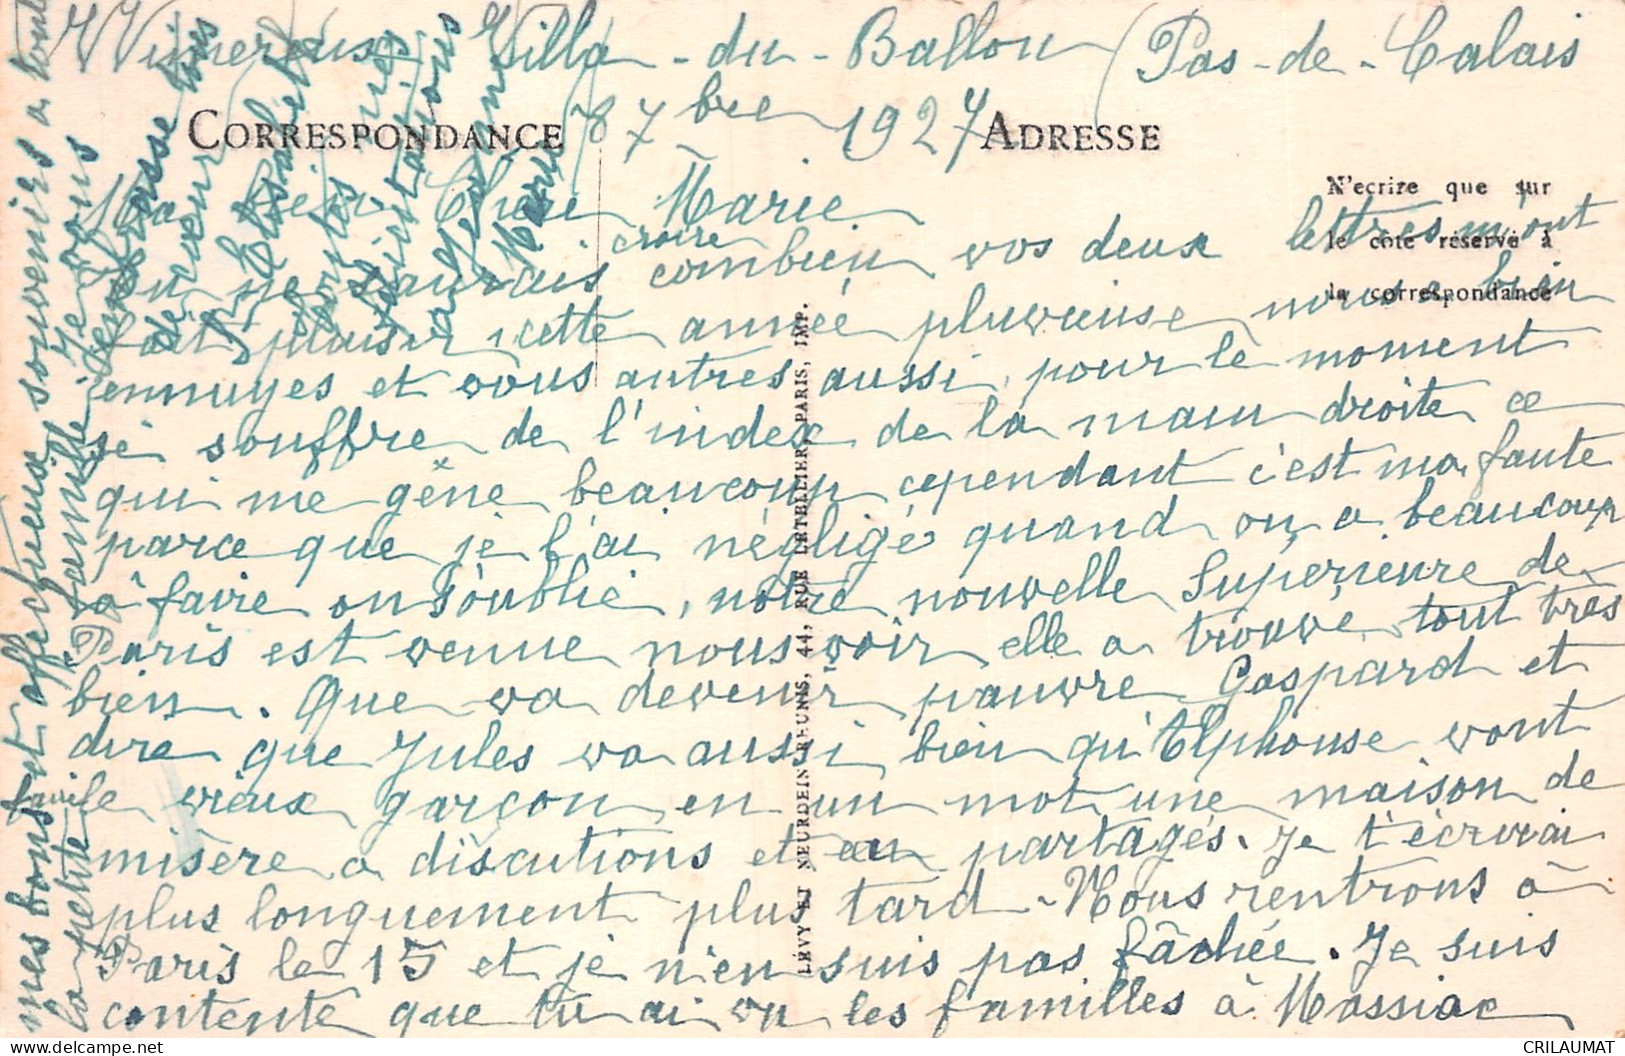 Wimereux Villa - du - Ballon (Pas - de - Calais
CORRESPONDANCE 8 7bre 1927 ADRESSE
N'ecrire que sur
le côté réservé à
la correspondance
Ma Bien Chère Marie
Tu ne saurais croire combien vos deux lettres m'ont
fait plaisir cette année pluvieuse nous a bien
ennuyes et vous autres aussi, pour le moment
je souffre de l'index de la main droite ce
qui me gêne beaucoup cependant c'est ma faute
parce que je l'ai négligé quand on a beaucoup
à faire on s'oublie, notre nouvelle Supérieure de
Paris est venue nous voir elle a trouvé tout très
bien. Que va devenir pauvre Gaspard et
dire que Jules va aussi bien qu'Alphonse vont
faire le vieux garçon, en un mot une maison de
misère a discutions et en partages. Je t'écrirai
plus longuement plus tard - Nous rentrons à
Paris le 15 et je n'en suis pas fâchée. Je suis
contente que tu ai vu les familles à Massiac
mes bons et affectueux souvenirs a toute
la petite famille. Je vous
embrasse tous
de cœur
Elisabeth
Marie
LÉVY ET NEURDEIN RÉUNIS, 44, RUE LETELLIER, PARIS, IMP.
CRILAUMAT